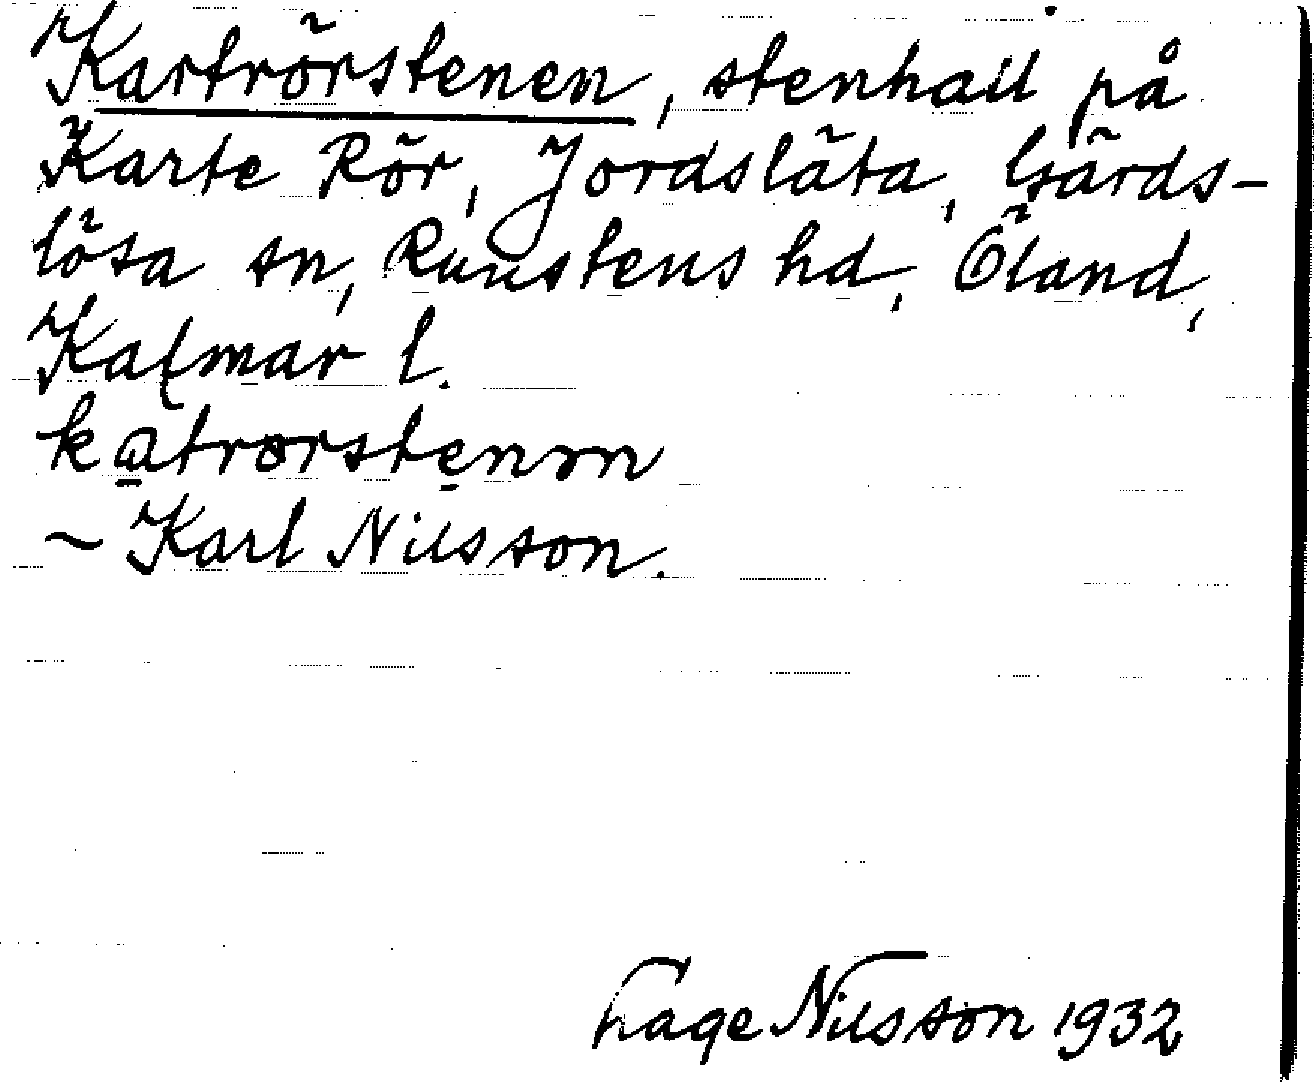 Kartrörstenen, stenhall på
Karte Rör, Jordsläta, Gärds-
lösa sn, Runstens hd, Öland,
Kalmar l.
katrorstenən
~ Karl Nilsson.
Hage Nilsson 1932